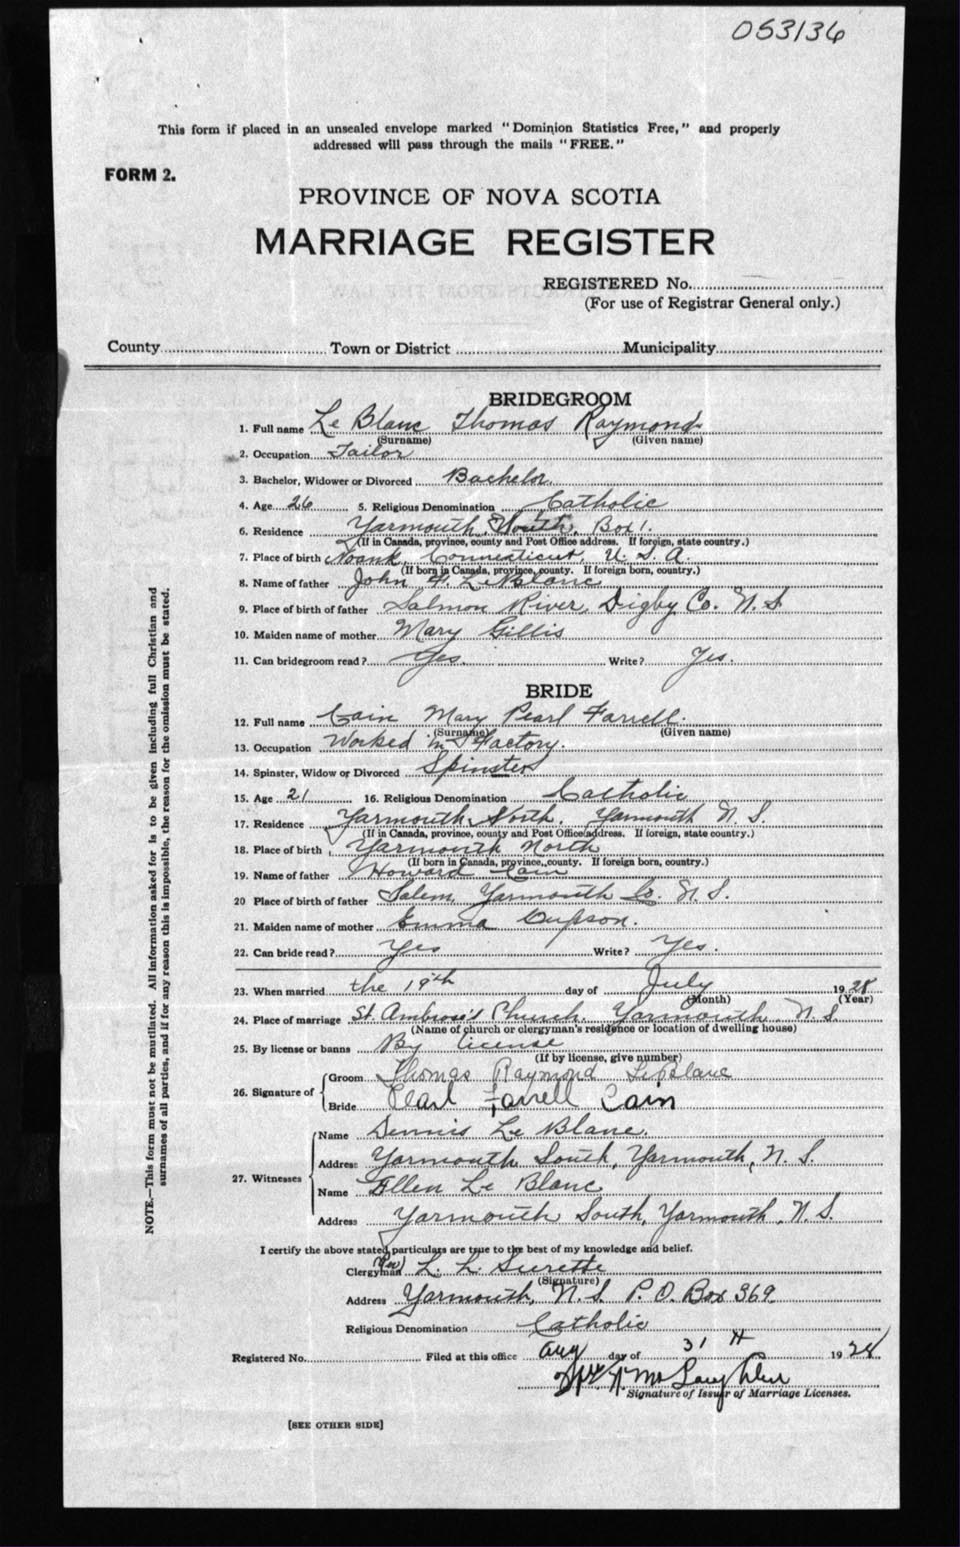 053136
This form if placed in an unsealed envelope marked "Dominion Statistics Free," and properly
addressed will pass through the mails "FREE."
FORM 2.
PROVINCE OF NOVA SCOTIA
MARRIAGE REGISTER
REGISTERED No.
(For use of Registrar General only.)
County Town or District Municipality
BRIDEGROOM
1. Full name Le Blanc Thomas Raymond
(Surname) (Given name)
2. Occupation Tailor
3. Bachelor, Widower or Divorced Bachelor
4. Age 26 5. Religious Denomination Catholic
6. Residence Yarmouth North, Box 1.
(If in Canada, province, county and Post Office address. If foreign, state country.)
7. Place of birth Noank, Connecticut, U.S.A.
(If born in Canada, province, county. If foreign born, country.)
8. Name of father John F. LeBlanc
9. Place of birth of father Salmon River, Digby Co. N.S.
10. Maiden name of mother Mary Gillis
11. Can bridegroom read? Yes. Write? Yes.
BRIDE
12. Full name Cain Mary Pearl Farrell.
(Surname) (Given name)
13. Occupation Worked in Factory.
14. Spinster, Widow or Divorced Spinster
15. Age 21 16. Religious Denomination Catholic
17. Residence Yarmouth North. Yarmouth N.S.
(If in Canada, province, county and Post Office address. If foreign, state country.)
18. Place of birth Yarmouth North
(If born in Canada, province, county. If foreign born, country.)
19. Name of father Howard Cain
20 Place of birth of father Salem, Yarmouth Co. N.S.
21. Maiden name of mother Emma
22. Can bride read? Yes Write? Yes.
23. When married the 19th day of July 1928
(Month) (Year)
24. Place of marriage St. Ambrose's Church. Yarmouth N.S.
(Name of church or clergyman's residence or location of dwelling house)
25. By license or banns By license
(If by license, give number)
26. Signature of
Groom Thomas Raymond LeBlanc
Bride Pearl Farrell Cain
27. Witnesses
Name Dennis Le Blanc.
Address Yarmouth South, Yarmouth, N.S.
Name Ellen Le Blanc
Address Yarmouth South, Yarmouth, N.S.
I certify the above stated particulars are true to the best of my knowledge and belief.
Clergyman (Rev) L. L. Surette
(Signature)
Address Yarmouth, N.S. P.O. Box 369
Religious Denomination Catholic
Registered No. Filed at this office Aug day of 31 1928
McLaughlin
Signature of Issuer of Marriage Licenses.
[SEE OTHER SIDE]
NOTE.—This form must not be mutilated. All information asked for is to be given including full Christian and
surnames of all parties, and if for any reason this is impossible, the reason for the omission must be stated.